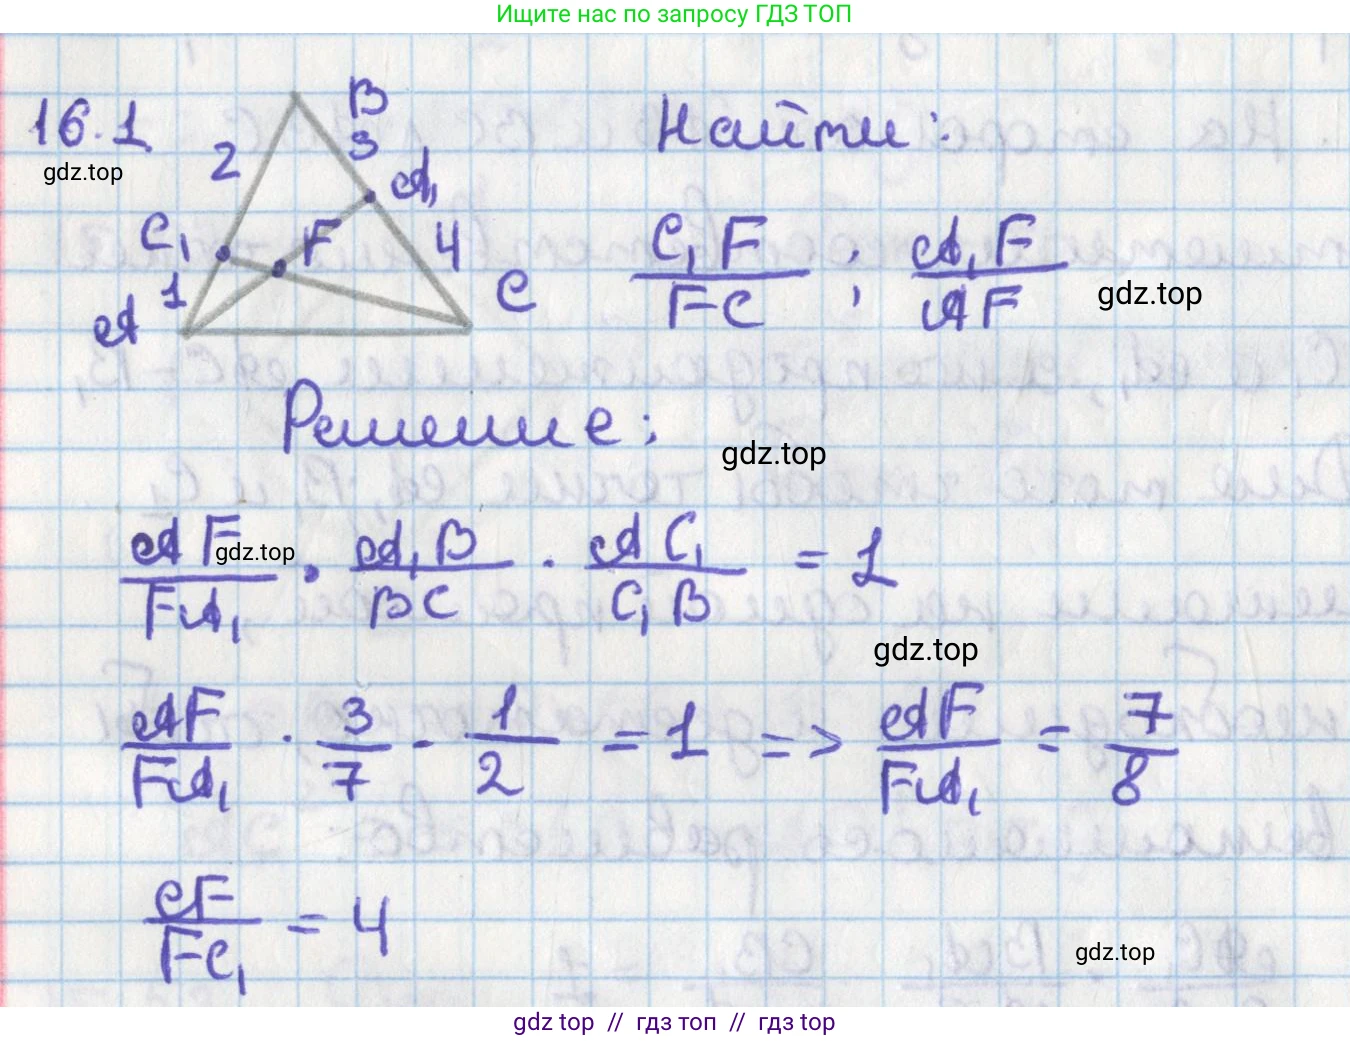 Ищите нас по запросу ГДЗ ТОП
16.1
gdz.top
B
2
3
A₁
C₁
F
4
1
A
C
Найти:
C₁F/FC ; A₁F/AF
gdz.top
Решение:
gdz.top
AF/FA₁ · A₁B/BC · AC₁/C₁B = 1
gdz.top
gdz.top
AF/FA₁ · 3/7 - 1/2 = 1 => AF/FA₁ = 7/8
CF/FC₁ = 4
gdz.top
gdz top // гдз топ // gdz top